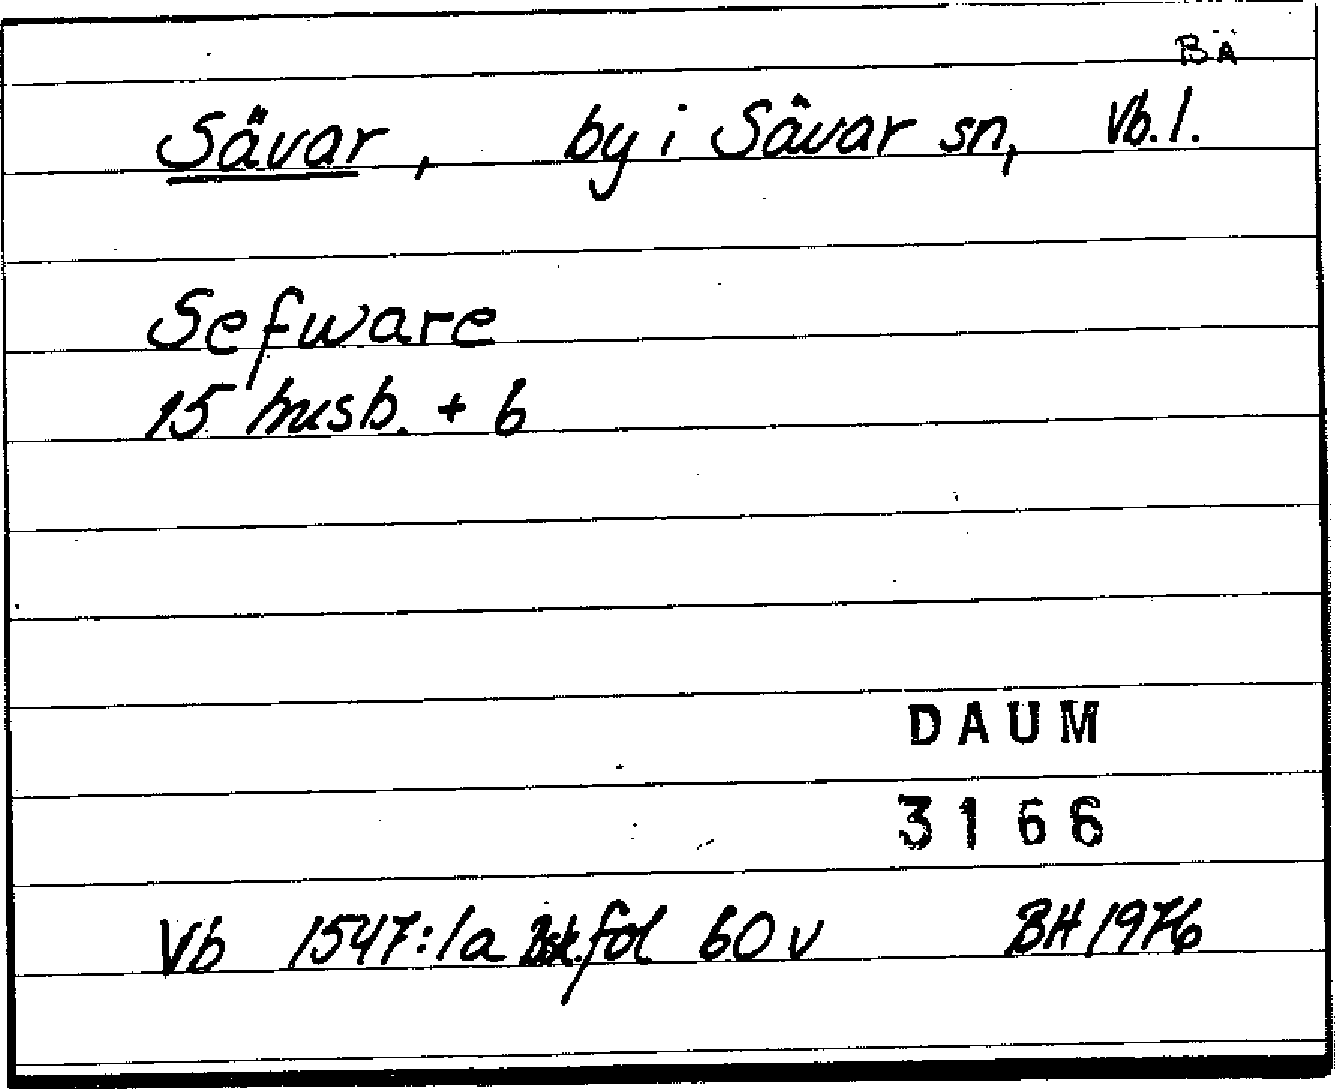 BÄ
Sävar, by i Sävar sn, Vb. l.
Sefware
15 husb. + 6
DAUM
3166
Vb 1547:1a Bsk. fol 60 v BH 1976